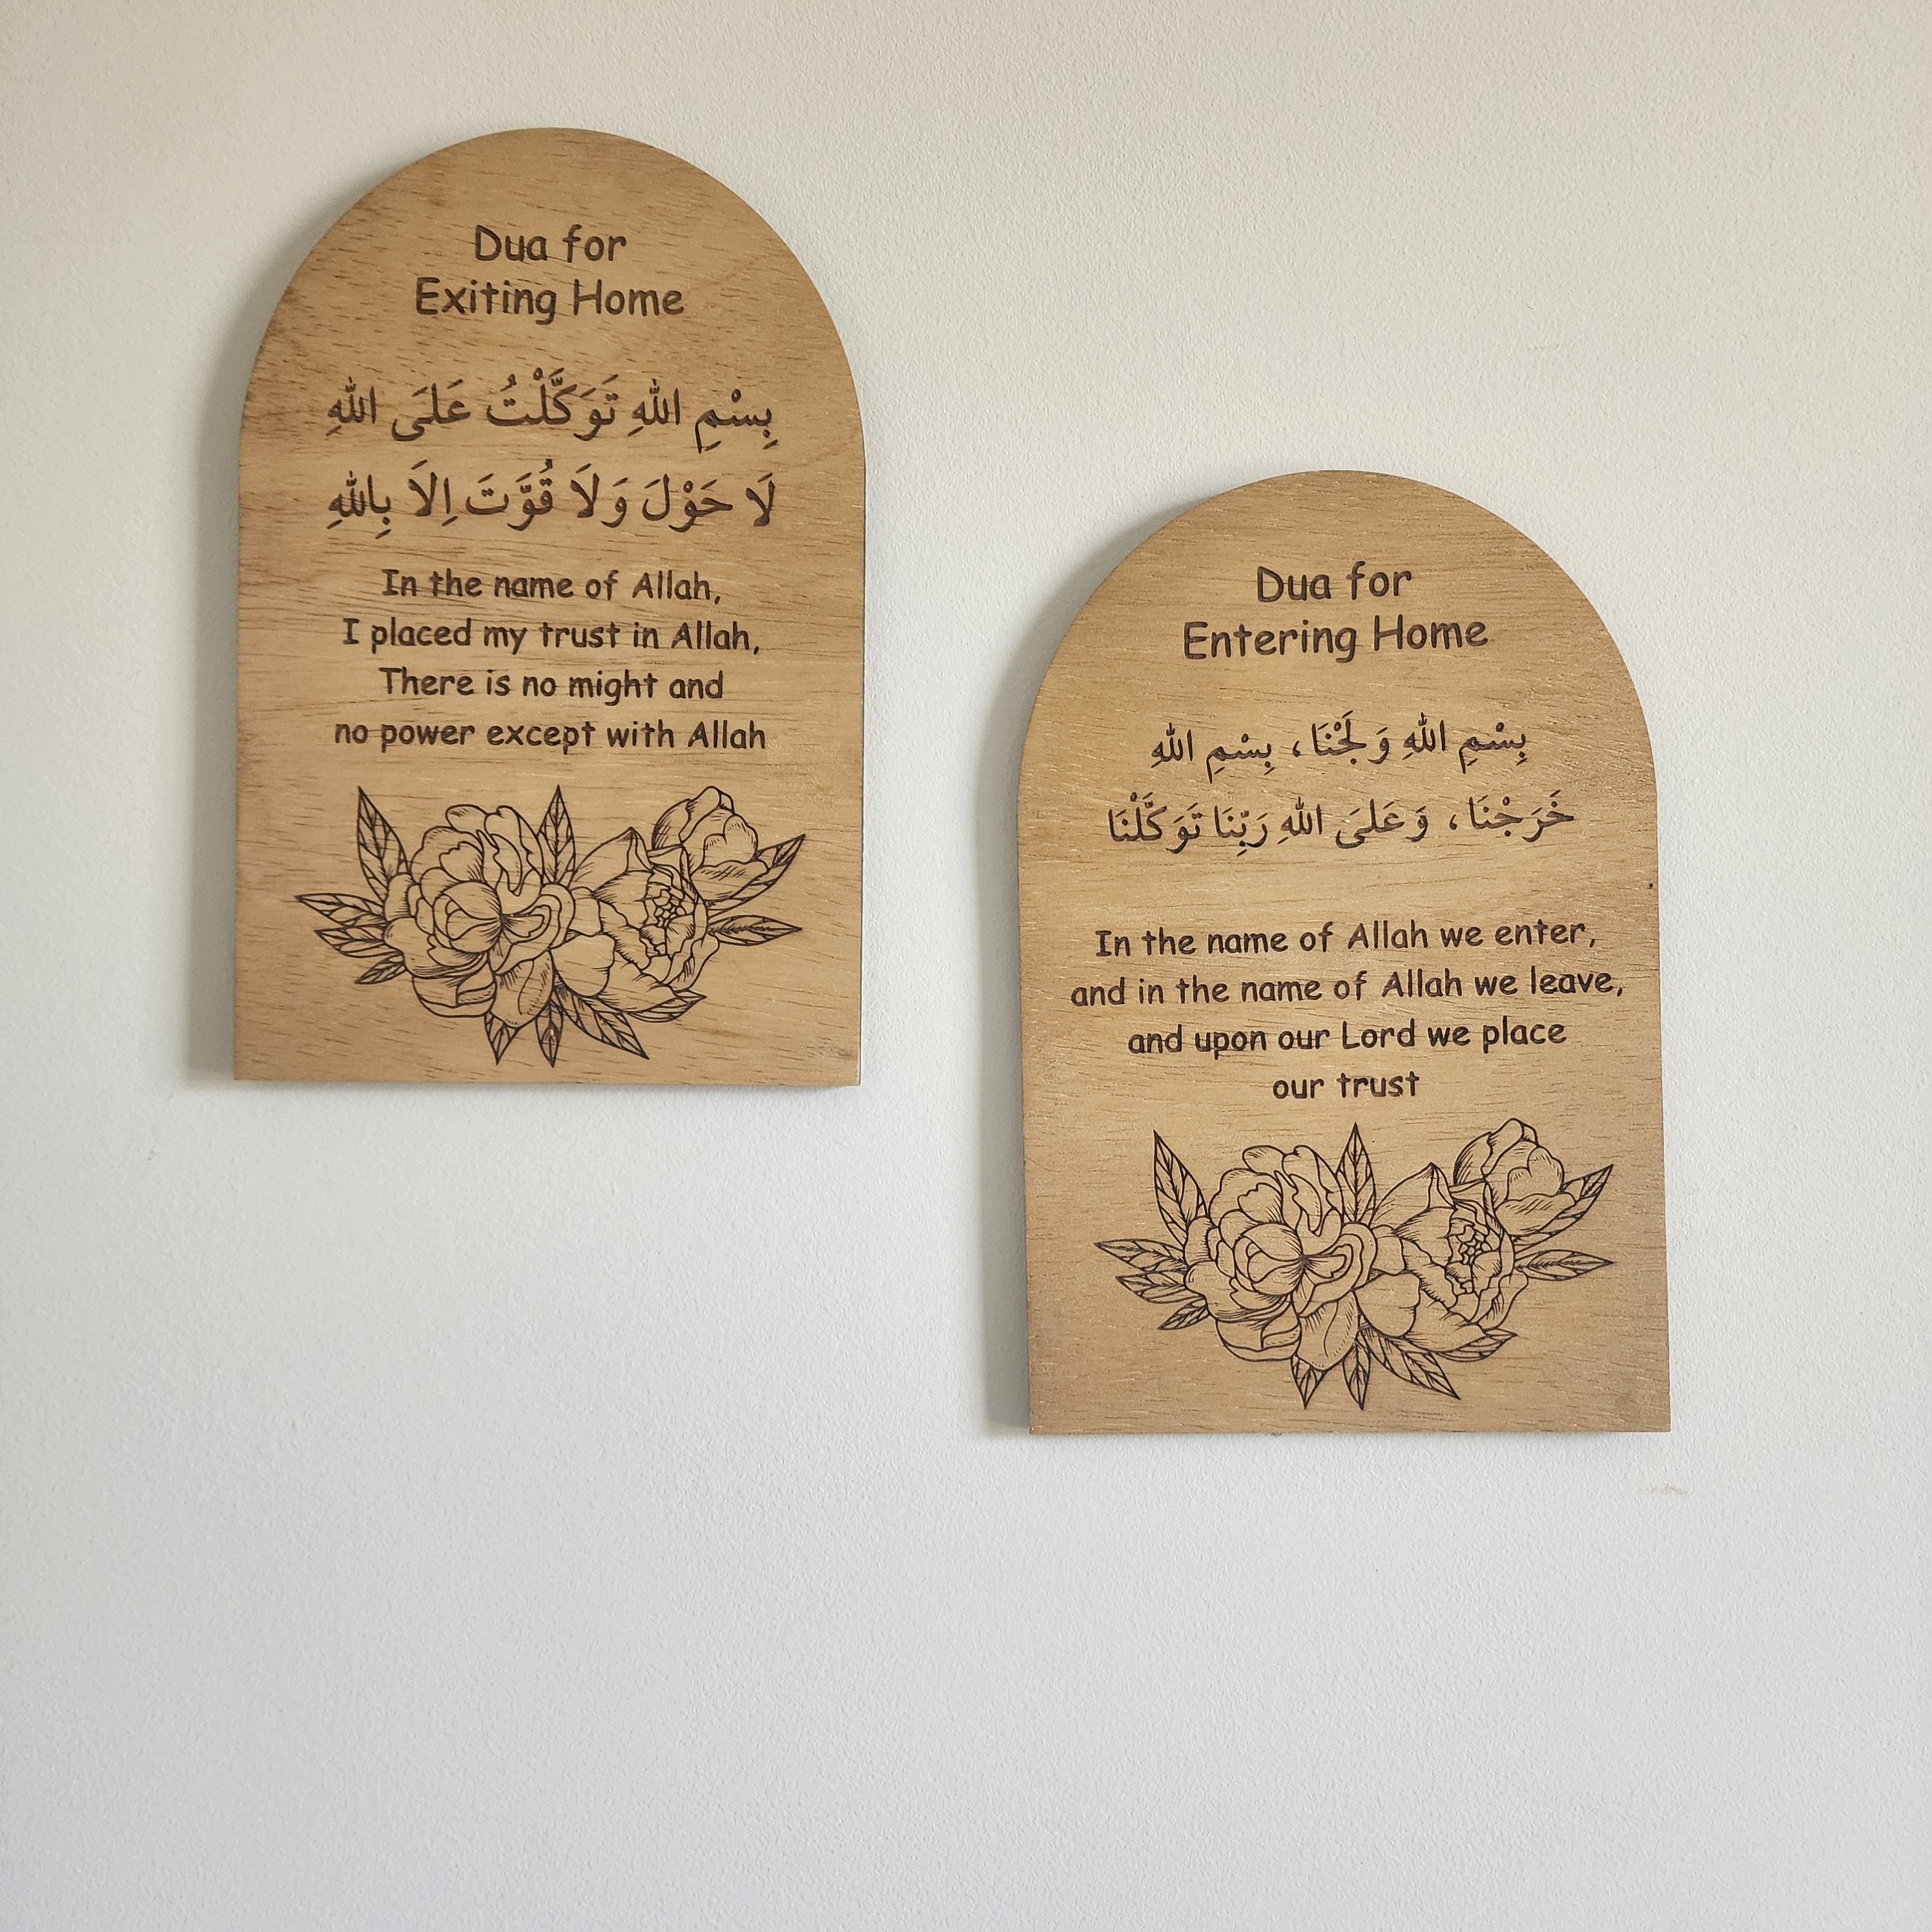 Dua for
Exiting Home
بِسْمِ اللهِ تَوَكَّلْتُ عَلَى اللهِ
لَا حَوْلَ وَلَا قُوَّتَ اِلَا بِاللهِ
In the name of Allah,
I placed my trust in Allah,
There is no might and
no power except with Allah
Dua for
Entering Home
بِسْمِ اللهِ وَلَجْنَا، بِسْمِ اللهِ
خَرَجْنَا، وَعَلَى اللهِ رَبِّنَا تَوَكَّلْنَا
In the name of Allah we enter,
and in the name of Allah we leave,
and upon our Lord we place
our trust